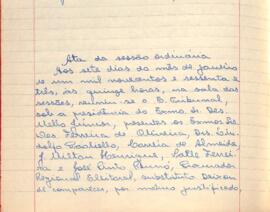 Ata da sessão ordinária
Aos sete dias do mês de janeiro
de um mil novecentos e sessenta e
três, às quinze horas, na sala das
sessões, reuniu-se o E. Tribunal,
sob a presidência do Exmo. Sr. Des.
Mello Júnior, presentes os Exmos. Srs.
Des. Ferreira de Oliveira, Drs.
Coelho, Corrêa de Almeida
J. Milton Henrique,
e José Pinto, Procurador
Regional Eleitoral, substituto. Deixou
de comparecer, por motivo justificado